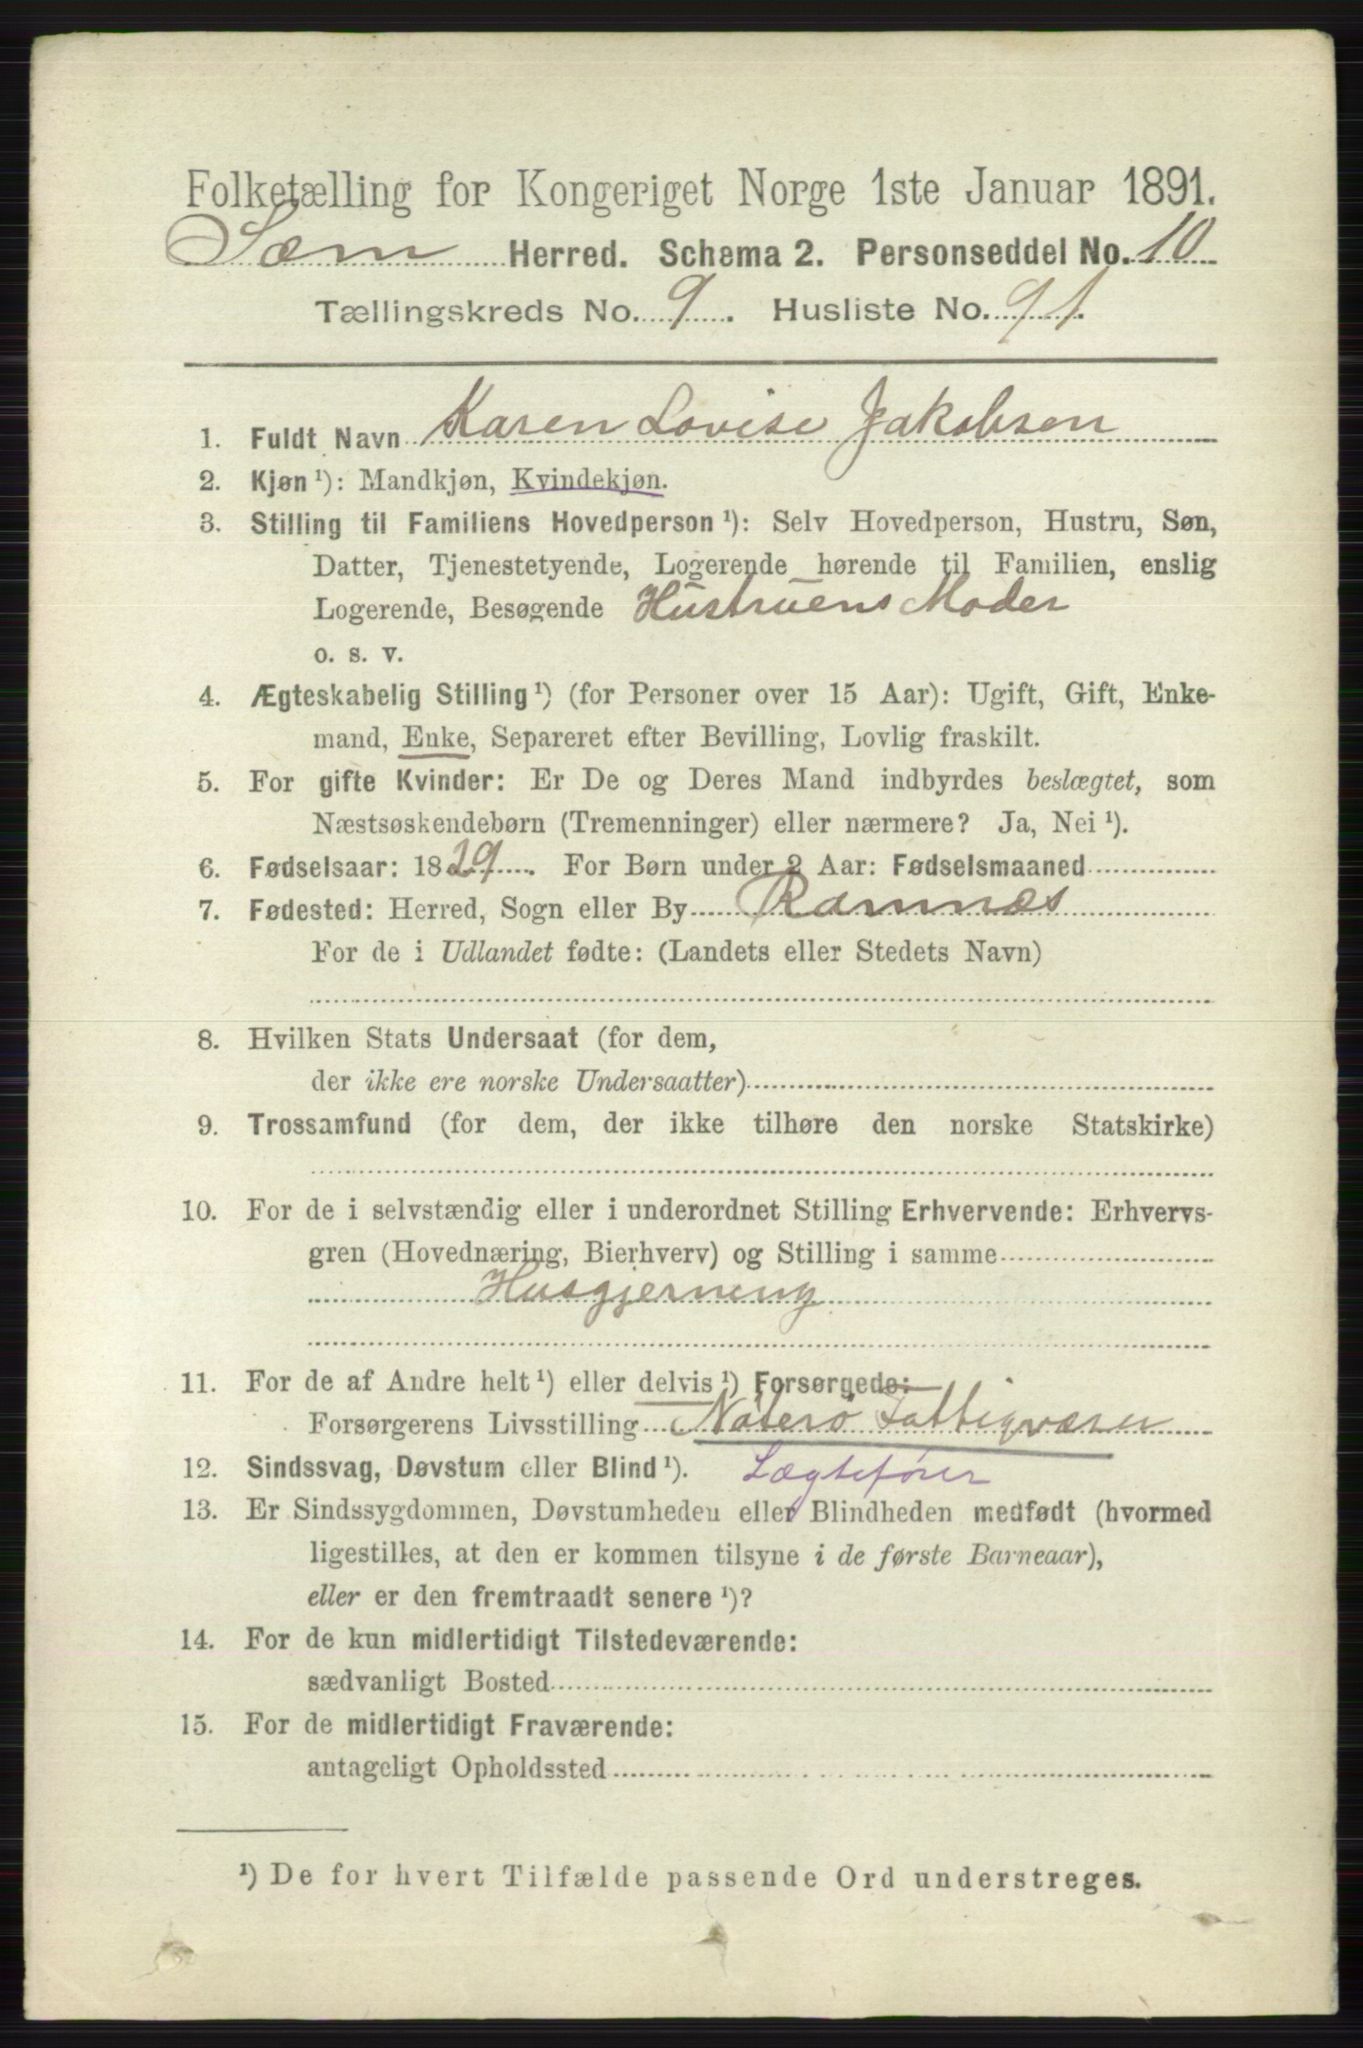 Folketælling for Kongeriget Norge 1ste Januar 1891.
Sæm Herred. Schema 2. Personseddel No. 10
Tællingskreds No. 9. Husliste No. 91.
1. Fuldt Navn Karen Lovise Jakobsen
2. Kjøn ¹): Mandkjøn, Kvindekjøn.
3. Stilling til Familiens Hovedperson ¹): Selv Hovedperson, Hustru, Søn,
Datter, Tjenestetyende, Logerende hørende til Familien, enslig
Logerende, Besøgende Hustruens Moder
o. s. v.
4. Ægteskabelig Stilling ¹) (for Personer over 15 Aar): Ugift, Gift, Enke-
mand, Enke, Separeret efter Bevilling, Lovlig fraskilt.
5. For gifte Kvinder: Er De og Deres Mand indbyrdes beslægtet, som
Næstsøskendebørn (Tremenninger) eller nærmere? Ja, Nei ¹).
6. Fødselsaar: 1829. For Børn under 2 Aar: Fødselsmaaned
7. Fødested: Herred, Sogn eller By Ramnæs
For de i Udlandet fødte: (Landets eller Stedets Navn)
8. Hvilken Stats Undersaat (for dem,
der ikke ere norske Undersaatter)
9. Trossamfund (for dem, der ikke tilhøre den norske Statskirke)
10. For de i selvstændig eller i underordnet Stilling Erhvervende: Erhvervs-
gren (Hovednæring, Bierhverv) og Stilling i samme
Husgjerning
11. For de af Andre helt ¹) eller delvis ¹) Forsørgede:
Forsørgerens Livsstilling Nøterø Fattigvæsen
12. Sindssvag, Døvstum eller Blind ¹). Lægtefører
13. Er Sindssygdommen, Døvstumheden eller Blindheden medfødt (hvormed
ligestilles, at den er kommen tilsyne i de første Barneaar),
eller er den fremtraadt senere ¹)?
14. For de kun midlertidigt Tilstedeværende:
sædvanligt Bosted
15. For de midlertidigt Fraværende:
antageligt Opholdssted
¹) De for hvert Tilfælde passende Ord understreges.